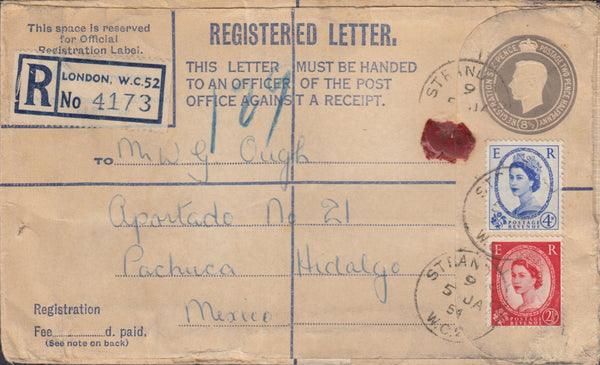 This space is reserved
for Official
Registration Label.
REGISTERED LETTER.
THIS LETTER MUST BE HANDED
TO AN OFFICER OF THE POST
OFFICE AGAINST A RECEIPT.
R
LONDON, W.C.52
No 4173
STRAND
9
JA
TO
Mr W G Ough
Apartado No 21
Pachuca Hidalgo
Mexico
E R
4D
POSTAGE
REVENUE
STRAND
9
5 JA
54
W.C.
E R
2½D
POSTAGE
REVENUE
Registration
Fee d. paid,
(See note on back)